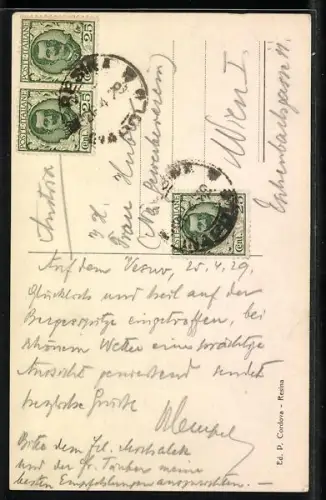 POSTE ITALIANE
CENT. 25
POSTE ITALIANE
CENT. 25
POSTE ITALIANE
CENT. 25
Austria
I. H.
Frau Huber
(Nö. Gewerbeverein)
Wien I.
Eschenbachgasse 11.
Auf dem Vesuv, 25.4.29.
Glücklich und heil auf der
Bergesspitze eingetroffen, bei
schönem Wetter eine prächtige
Aussicht geniessend sendet
herzlichste Grüsse
Bitte dem Frl.
und der Fr. Tauber meine
besten Empfehlungen auszurichten. –
Ed. P. Cordova - Resina